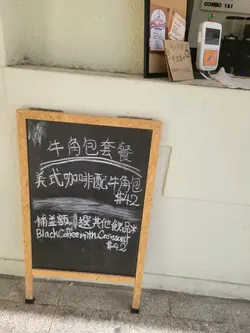 COMBO 1&1
牛角包套餐
美式咖啡配牛角包
$42
補差額 選其他飲品
Black Coffee with Croissant
$42